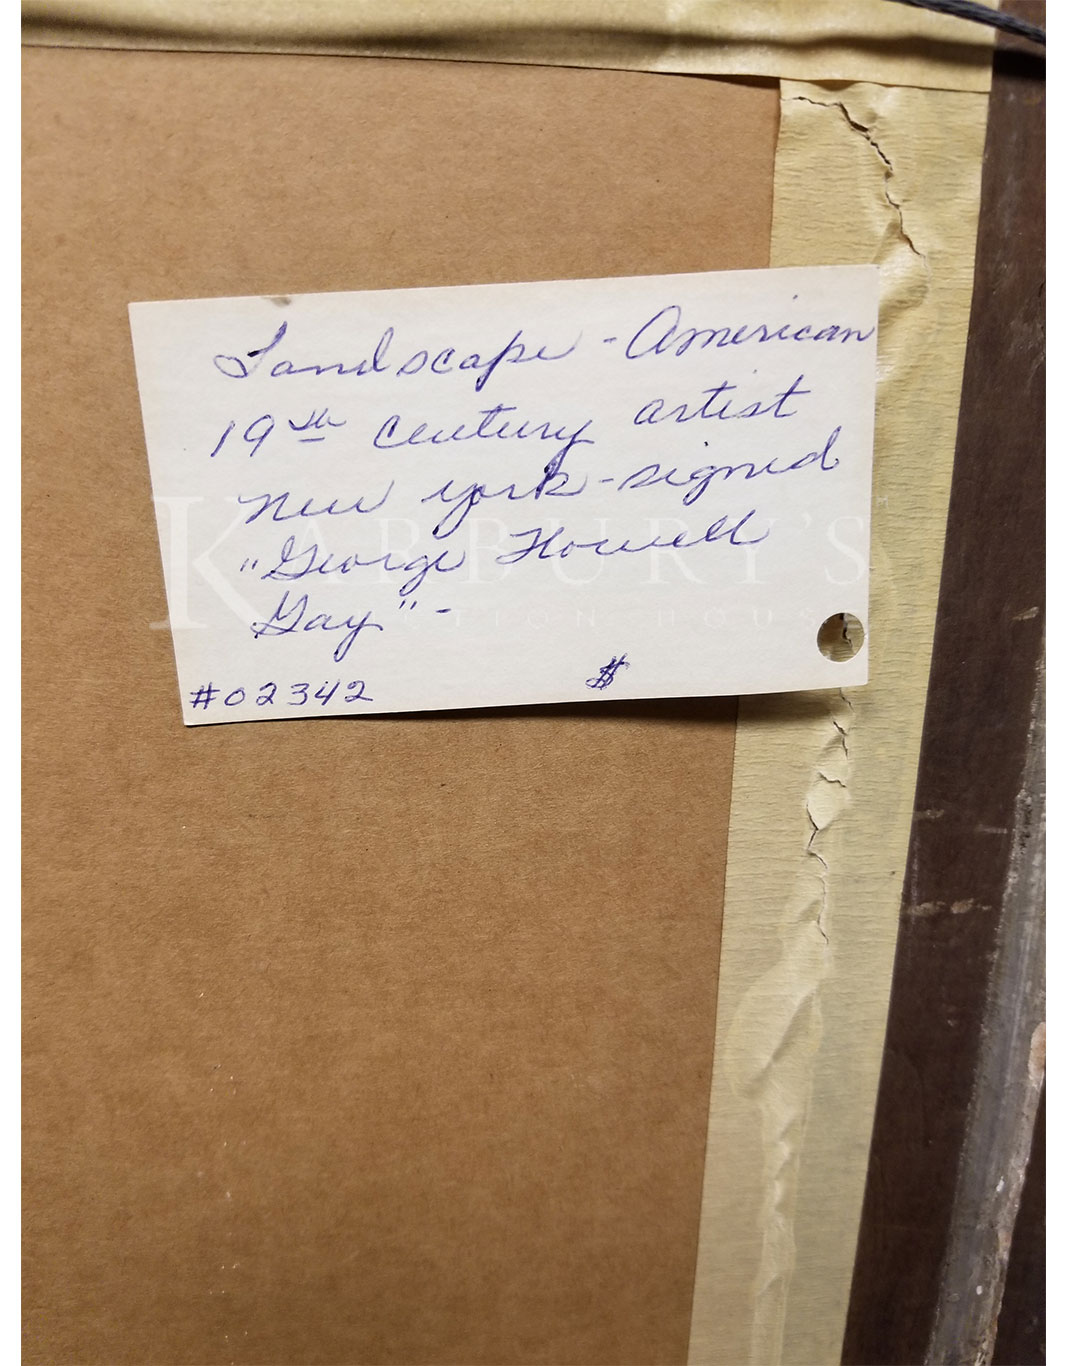 Landscape - American
19th century artist
New York - signed
"George Howell
Gay" -
#02342 $
KARBURY'S